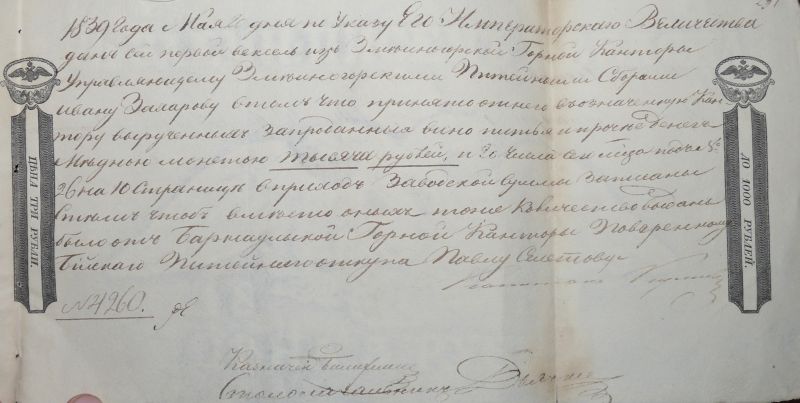 1839 года Мая дня по Указу Его Императорскаго Величества
данъ сей первой вексель изъ Змеиногорской Горной Канторы
Управляющему Змеиногорскими Питейными Сборами
Ивану Захарову втомъ что принято отнего въозначенную Кан-
тору вырученныхъ запроданныя вино питья и прочее денегъ
Медною монетою тысяча рублей, и
26 на 10 странице вприходъ Заводской суммы записаны
стемъ чтобъ вместо оныхъ тоже количество выдано
было отъ Барнаульской Горной Канторы Поверенному
Бійскаго Питейнаго откупа Павлу
№ 4260.
Казначей
ЦѢНА ТРИ РУБЛИ.
ДО 1000 РУБЛЕЙ.